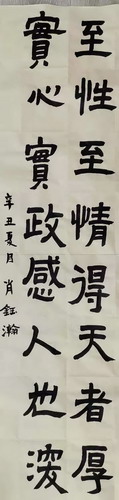 至性至情得天者厚
實心實政感人也深
辛丑夏月肖鈺瀚